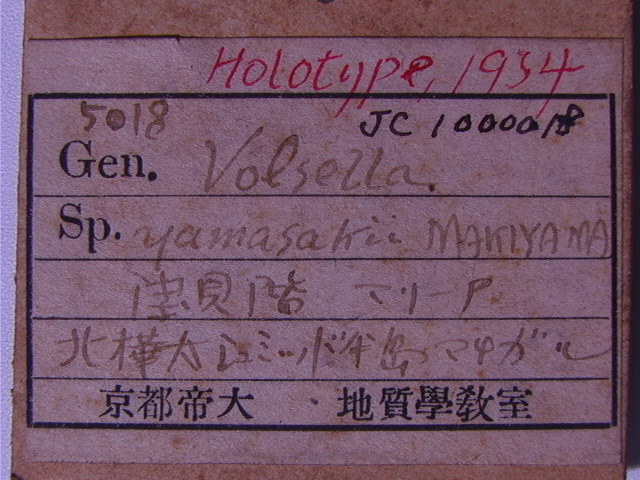 Holotype, 1934
5018
JC 1000018
Gen. Volsella.
Sp. yamasakii MAKIYAMA
貝階 マリーP
北樺太シュミット半島マチガル
京都帝大 地質學教室